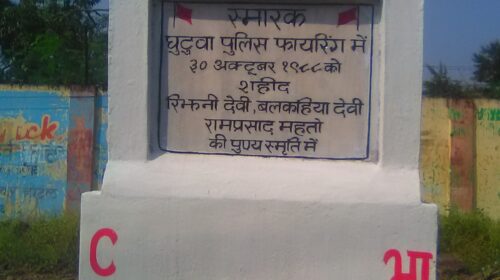 स्मारक
घुटुवा पुलिस फायरिंग में
३० अक्टूबर १९८८ को
शहीद
रिझनी देवी, बलकहिया देवी
रामप्रसाद महतो
की पुण्य स्मृति में
C भा